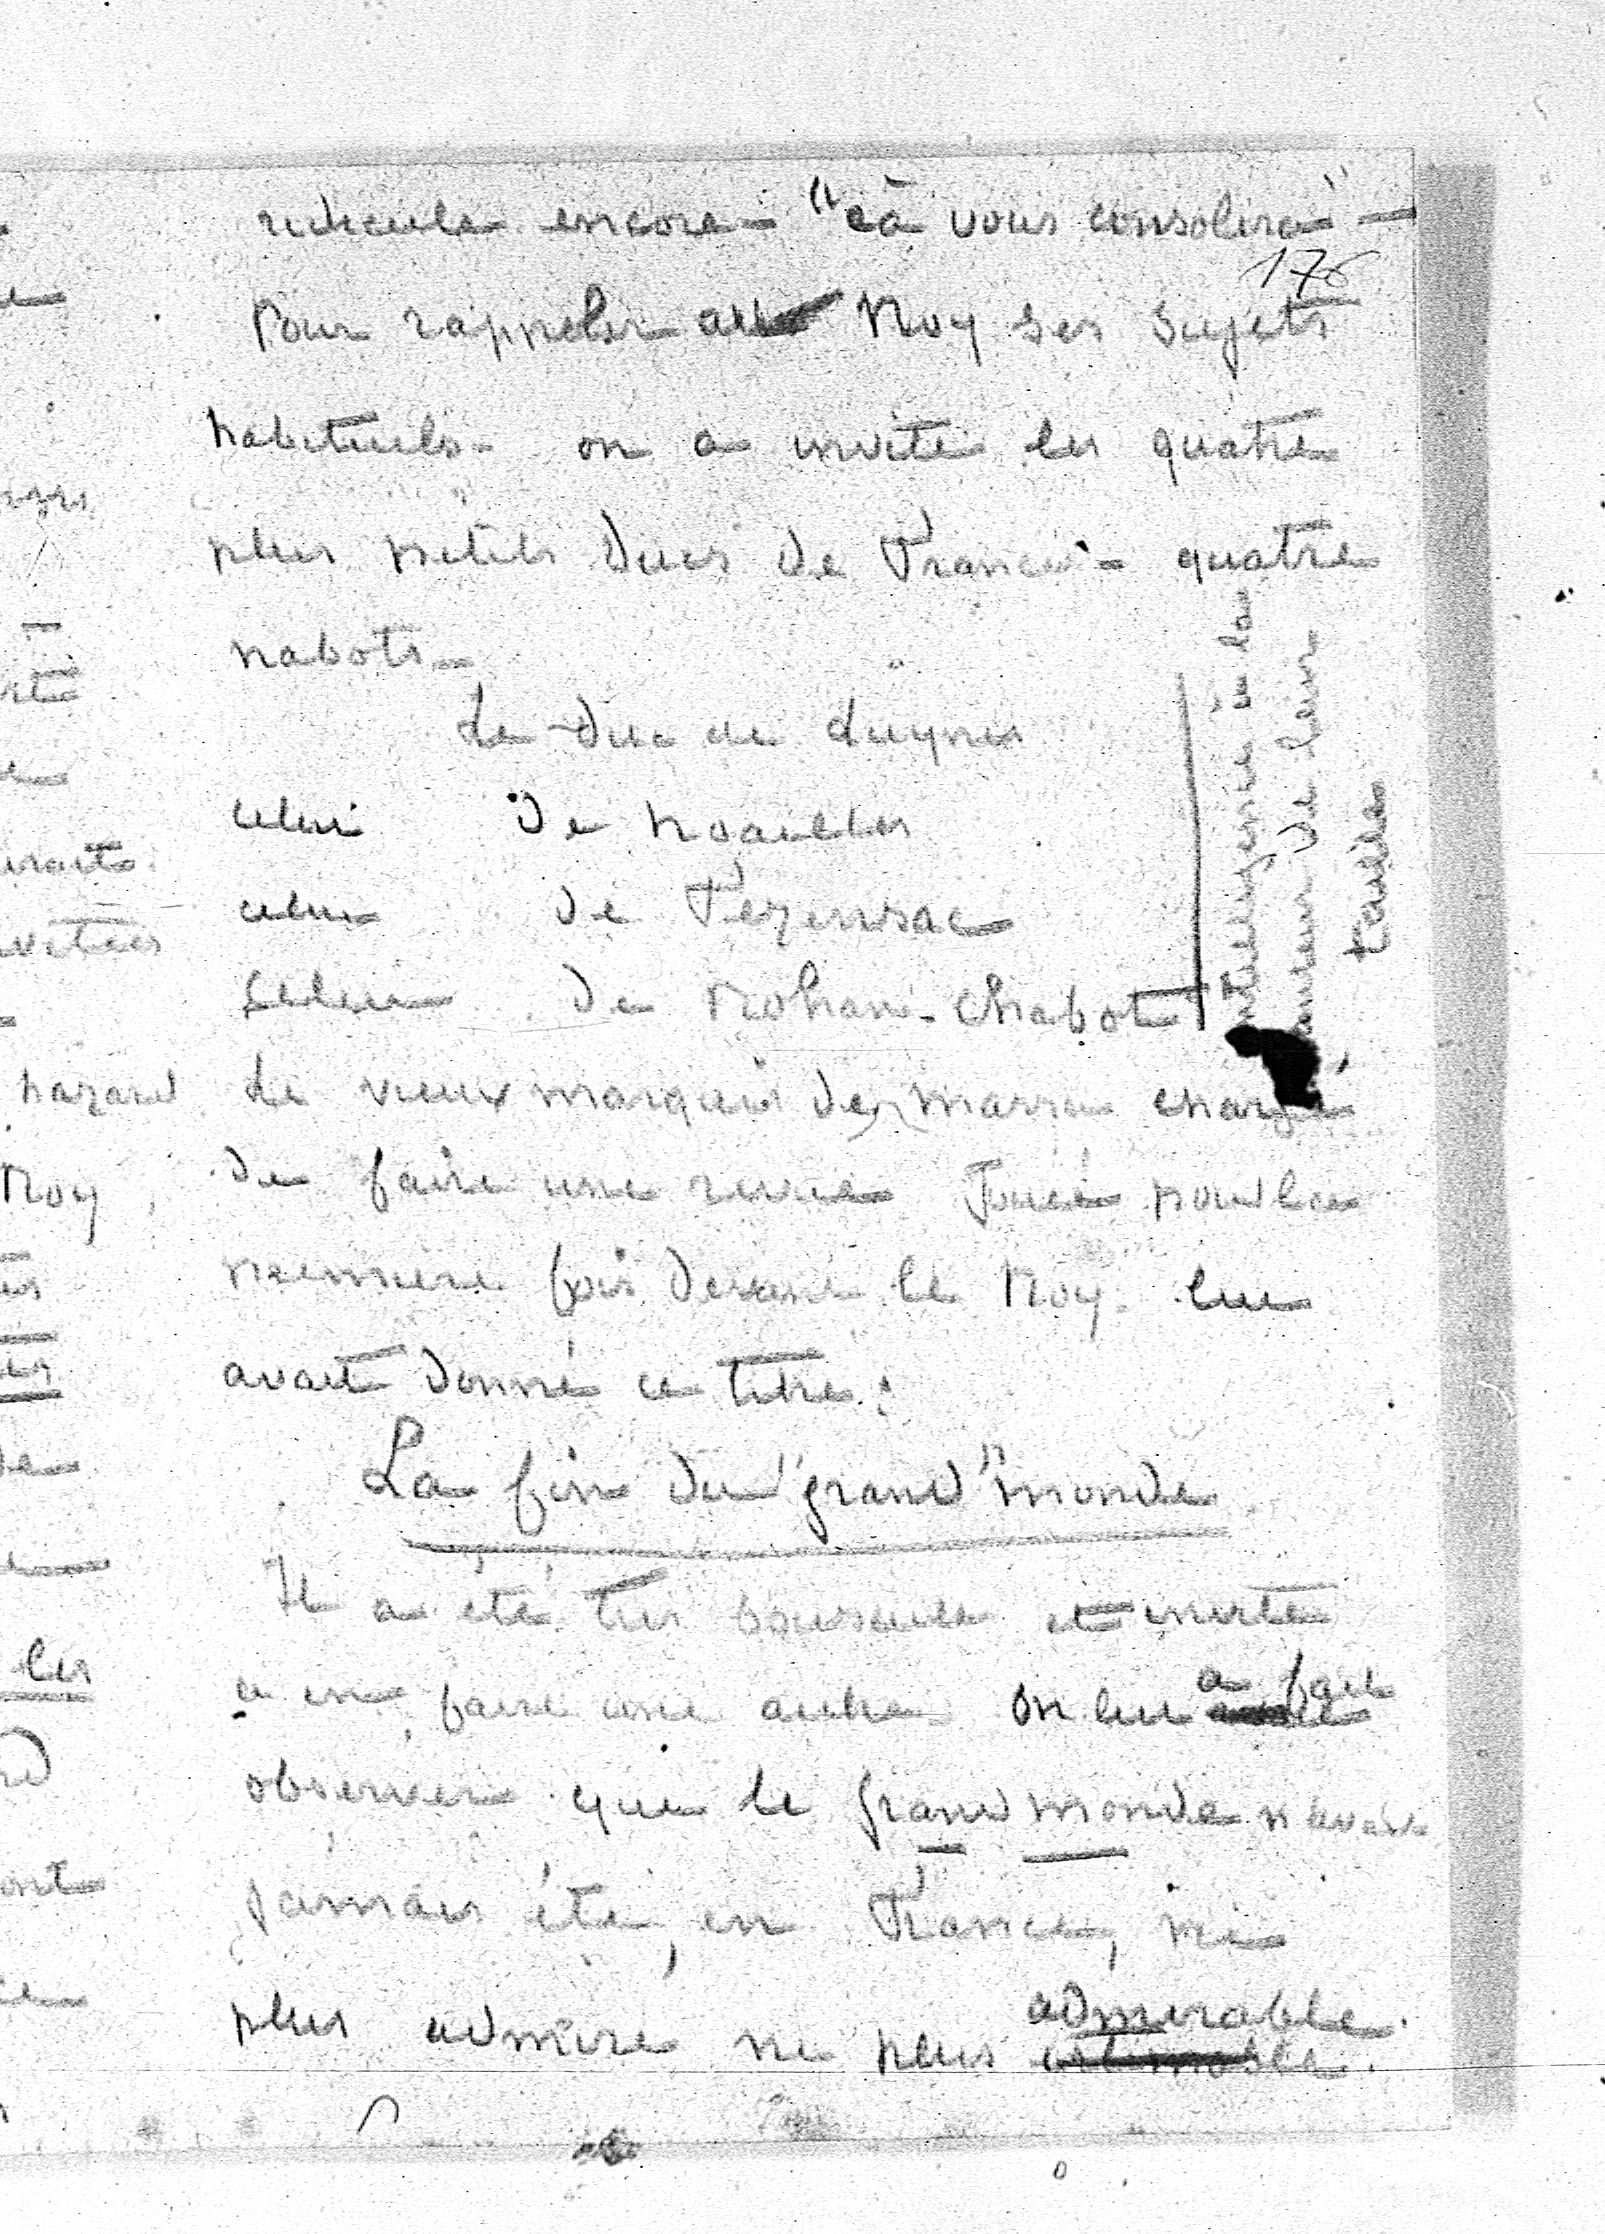 ridicule encore - "cà vous consolera" -
176
Pour rappeler au Roy ses sujets
habituels - on a invité les quatre
plus petits Ducs de France - quatre
nabots -
Le Duc de Luynes
celui de Noailles
celui de Fezensac
celui de Rohan-Chabot
intelligence à la
hauteur de leur
taille
Le vieux marquis de Massa chargé
de faire une revue jouée pour la
première fois devant le Roy - lui
avait donné ce titre :
La fin du "grand" monde
Il a été très bousculé et invité
a en faire une autre On lui a fait
observer que le grand monde n'avait
jamais été, en France, ni
plus admiré ni plus admirable.
hazard
Roy
les